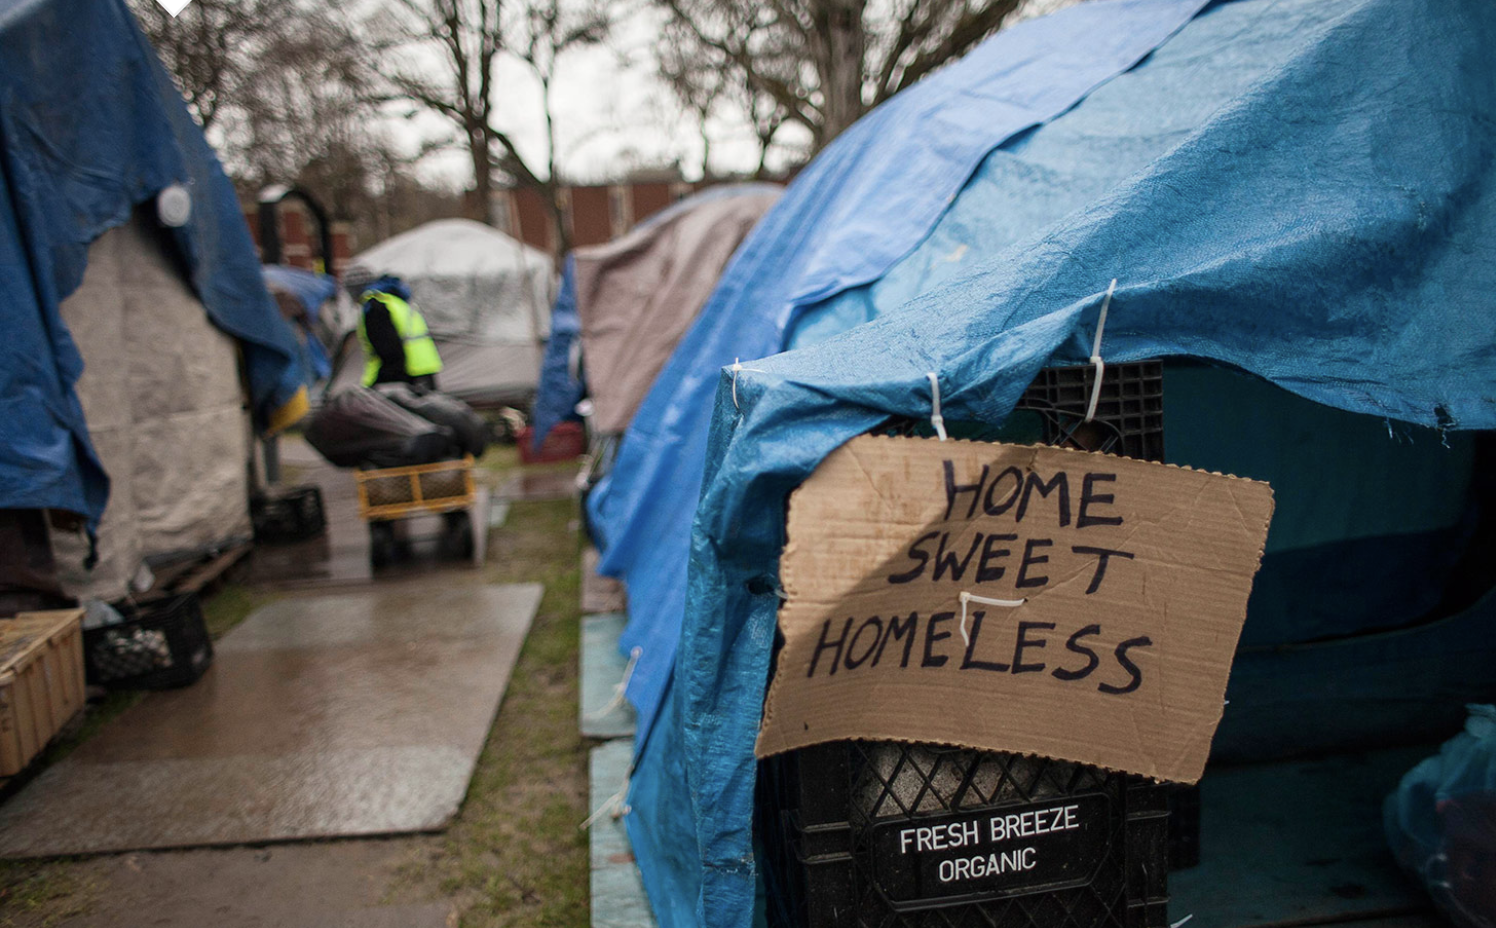 HOME
SWEET
HOMELESS
FRESH BREEZE
ORGANIC